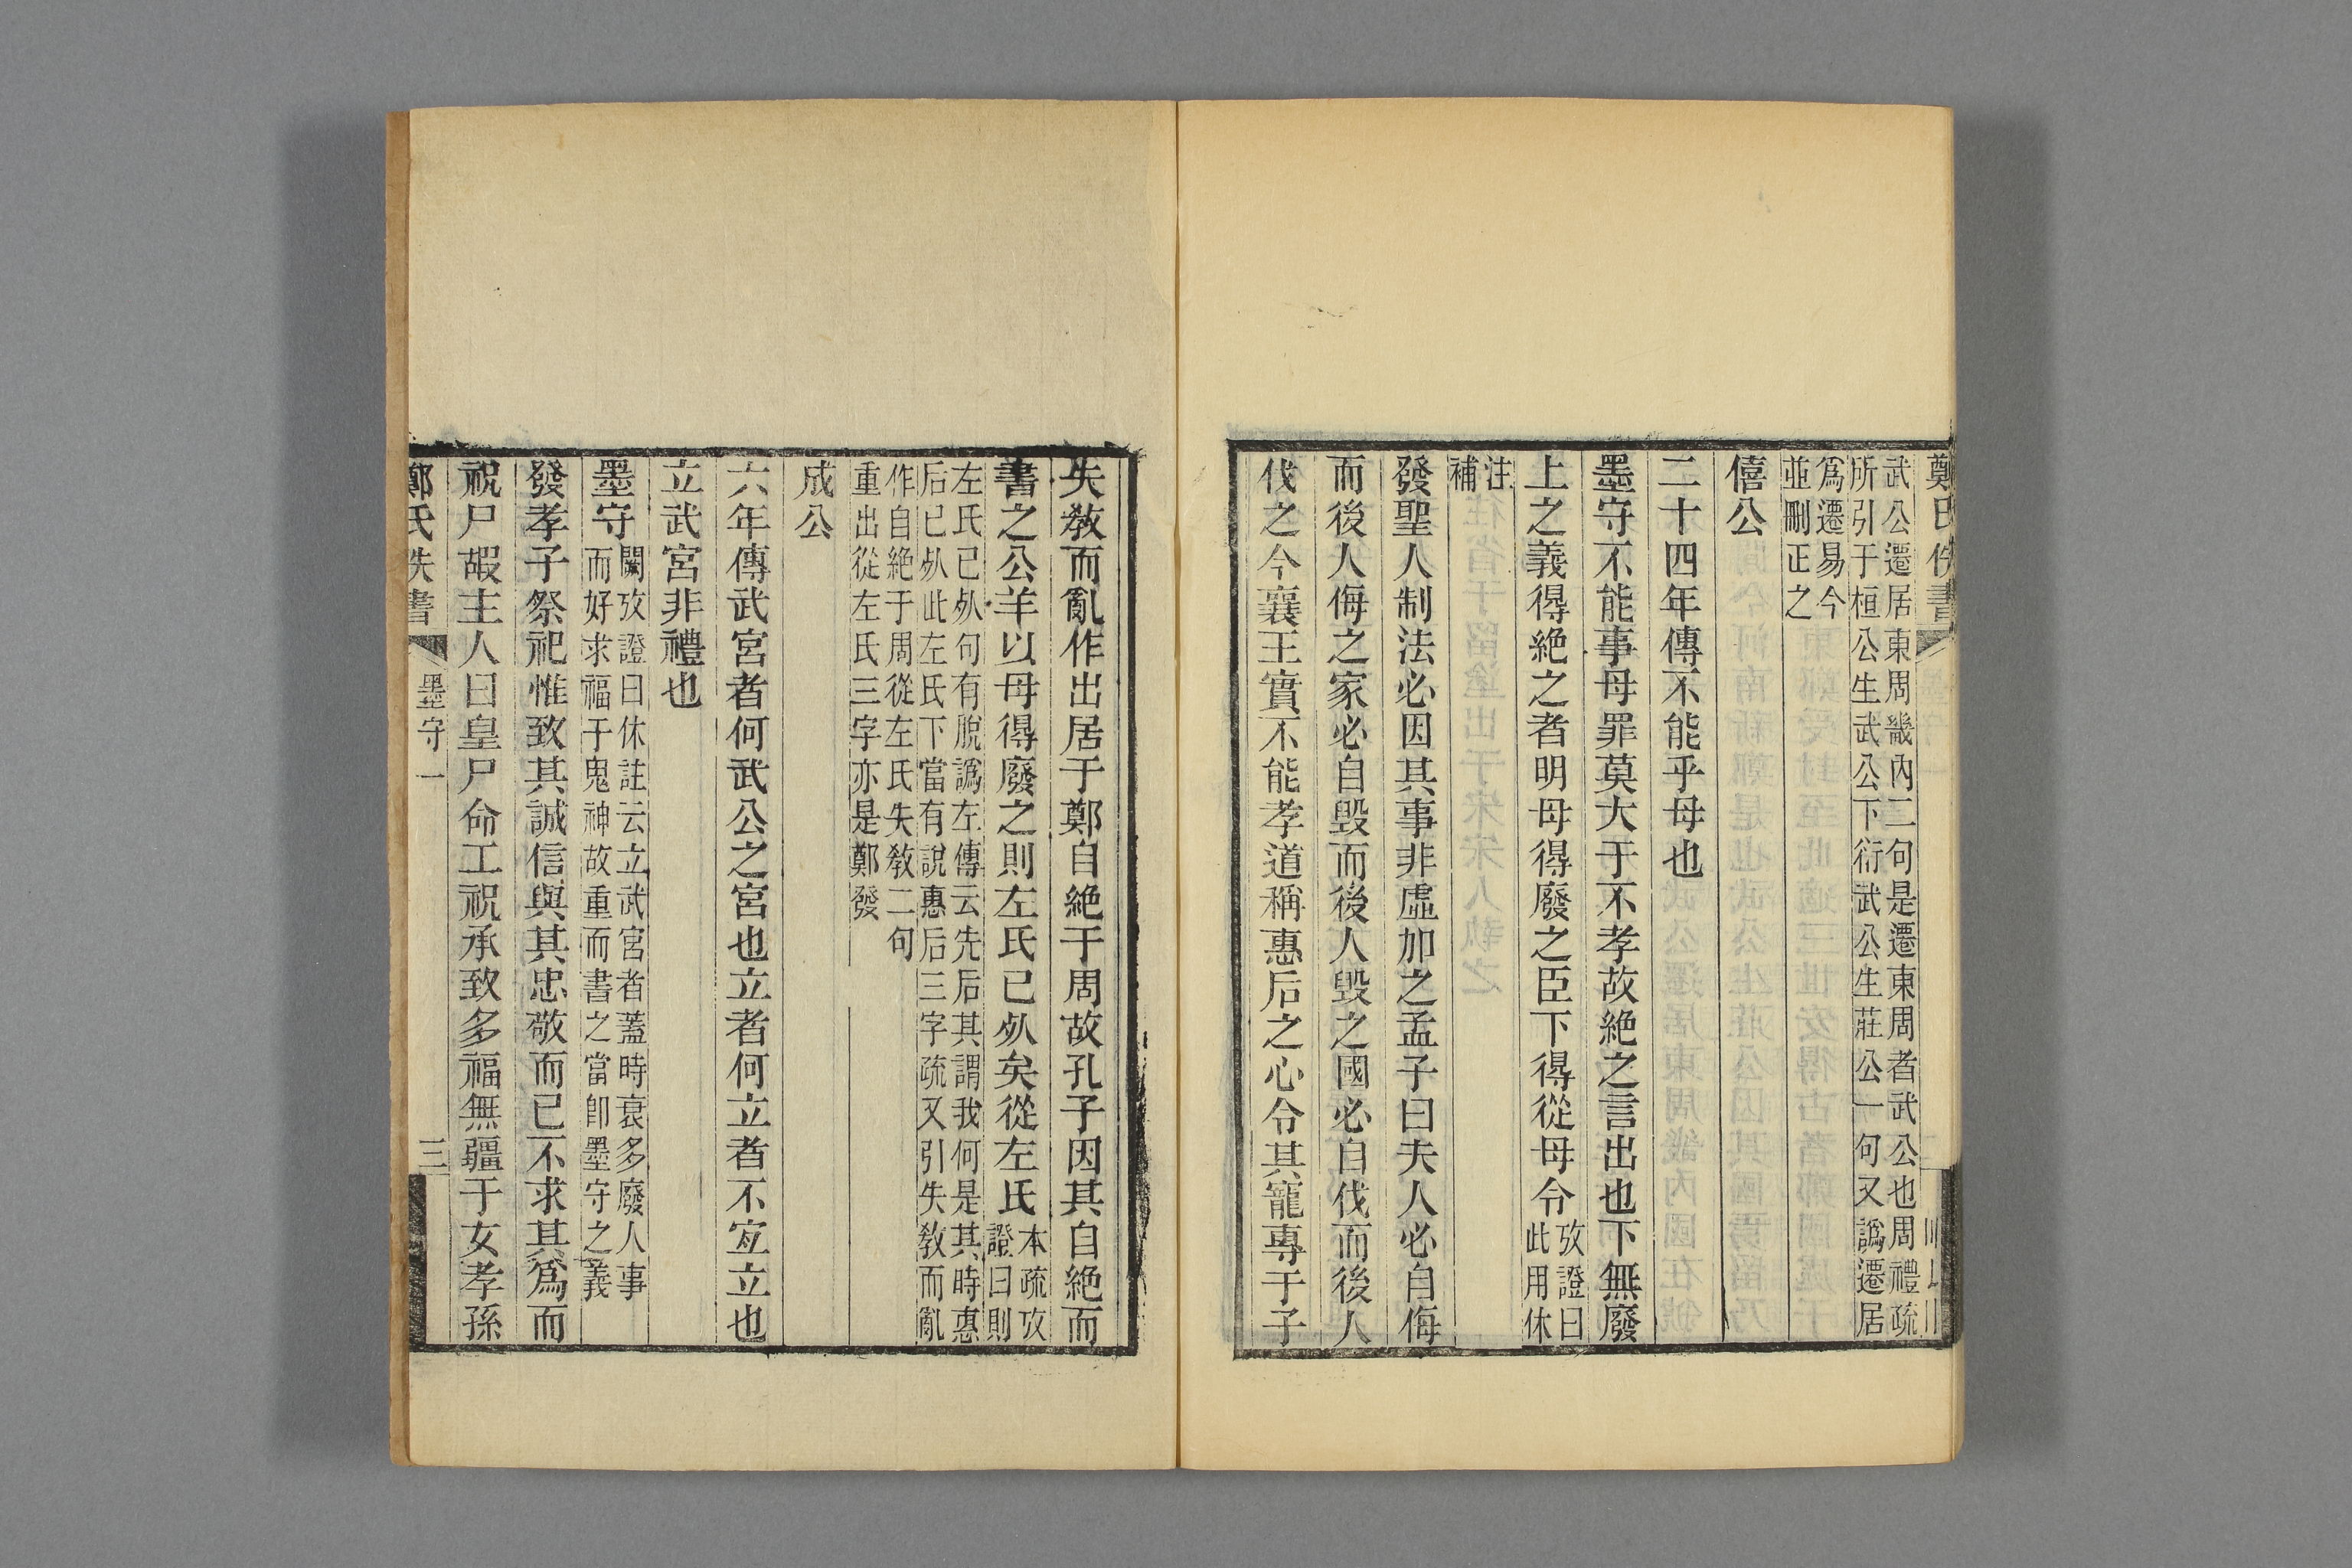 鄭氏佚書
武公遷居東周畿內二句是遷東周者武公也周禮疏
所引于桓公生武公下衍武公生莊公一句又譌遷居
爲遷易今
並刪正之
僖公
二十四年傳不能乎母也
墨守不能事母罪莫大于不孝故絶之言出也下無廢
上之義得絶之者明母得廢之臣下得從母令
攷證曰
此用休
注
補
發聖人制法必因其事非虛加之孟子曰夫人必自侮
而後人侮之家必自毀而後人毀之國必自伐而後人
伐之今襄王實不能孝道稱惠后之心令其寵專于子
失敎而亂作出居于鄭自絶于周故孔子因其自絶而
書之公羊以母得廢之則左氏已死矣從左氏
本疏攷
證曰則
左氏已死句有脫譌左傳云先后其謂我何是其時惠
后已死此左氏下當有說惠后三字疏又引失敎而亂
作自絶于周從左氏失敎二句
重出從左氏三字亦是鄭發
成公
六年傳武宮者何武公之宮也立者何立者不宐立也
立武宮非禮也
墨守
闕攷證曰休註云立武宮者蓋時衰多廢人事
而好求福于鬼神故重而書之當卽墨守之義
發孝子祭祀惟致其誠信與其忠敬而已不求其爲而
祝尸嘏主人曰皇尸命工祝承致多福無疆于女孝孫
鄭氏佚書
墨守一
三